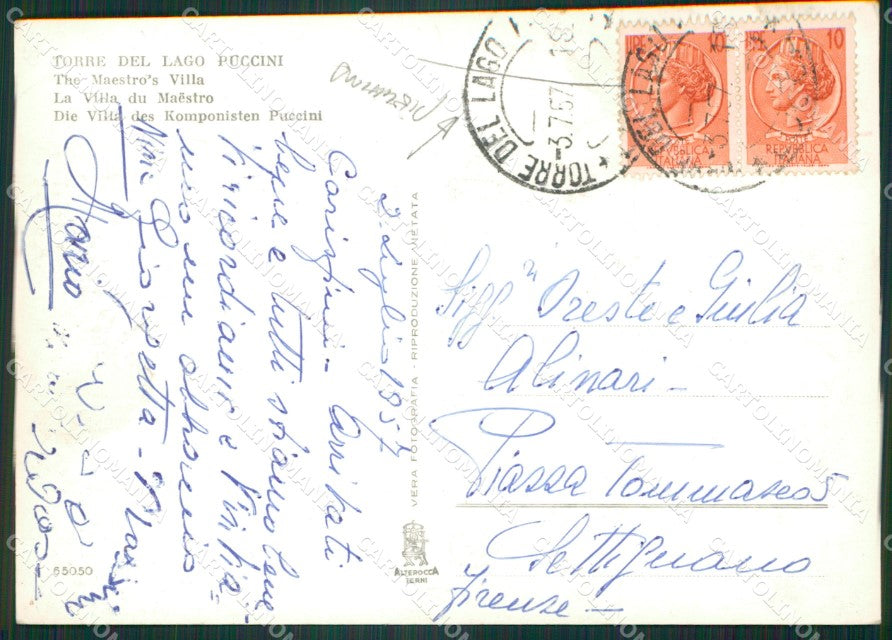 TORRE DEL LAGO PUCCINI
The Maestro's Villa
La Villa du Maëstro
Die Villa des Komponisten Puccini
TORRE DEL LAGO
-3.7.57
LIRE
10
REPVBBLICA
ITALIANA
REPVBBLICA
ITALIANA
2. Luglio 1957
Carissimi - Arrivati
bene e tutti stiamo bene
Vi ricordiamo e
un abbraccio
Nina Giorgetta -
Mario
VERA FOTOGRAFIA - RIPRODUZIONE VIETATA
Sigg.ri Oreste e Giulia
Alinari -
Piazza Tommaseo 5
Settignano
Firenze -
ALTEROCCA
TERNI
55050
CARTOLINOMANIA